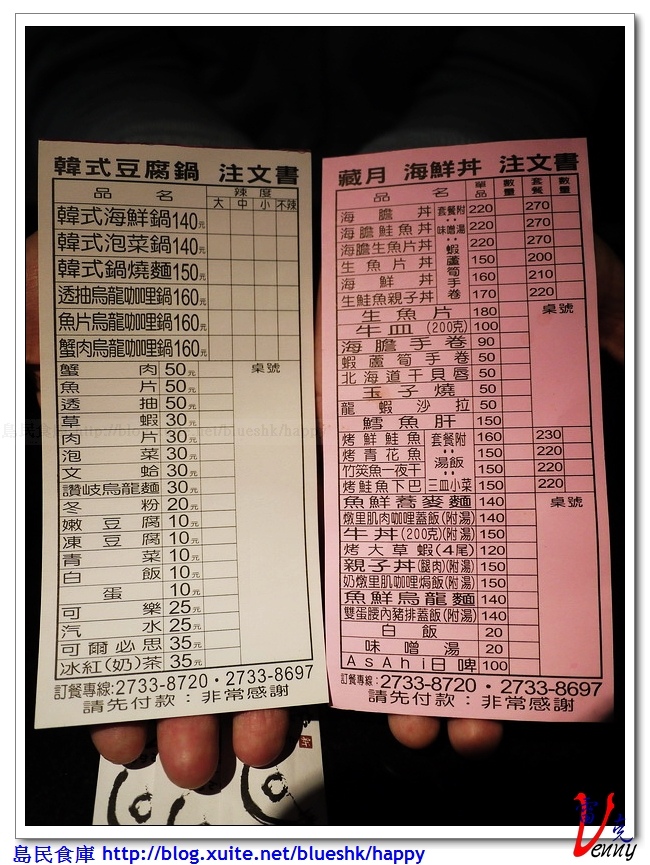 韓式豆腐鍋 注文書
品 名 辣度
大 中 小 不辣
韓式海鮮鍋140元
韓式泡菜鍋140元
韓式鍋燒麵150元
透抽烏龍咖哩鍋160元
魚片烏龍咖哩鍋160元
蟹肉烏龍咖哩鍋160元
蟹肉 50元 桌號
魚片 50元
透抽 50元
草蝦 30元
肉片 30元
泡菜 30元
文蛤 30元
讚岐烏龍麵 30元
冬粉 20元
嫩豆腐 10元
凍豆腐 10元
青菜 10元
白飯 10元
蛋 10元
可樂 25元
汽水 25元
可爾必思 35元
冰紅(奶)茶 35元
訂餐專線:2733-8720・2733-8697
請先付款:非常感謝
藏月 海鮮丼 注文書
品 名 單品 數量 套餐 數量
海膽丼 220 270
海膽鮭魚丼 220 270
海膽生魚片丼 220 270
生魚片丼 150 200
海鮮丼 160 210
生鮭魚親子丼 170 220
套餐附:味噌湯:蝦蘆筍手卷
生魚片 180 桌號
牛皿(200克) 100
海膽手卷 90
蝦蘆筍手卷 50
北海道干貝唇 50
玉子燒 50
龍蝦沙拉 50
鱈魚肝 150
烤鮮鮭魚 160 230
烤青花魚 150 220
竹筴魚一夜干 150 220
烤鮭魚下巴 150 220
套餐附:湯飯:三皿小菜
魚鮮蕎麥麵 140 桌號
燉里肌肉咖哩蓋飯(附湯) 140
牛丼(200克)(附湯) 150
烤大草蝦(4尾) 120
親子丼(腿肉)(附湯) 150
奶燉里肌咖哩焗飯(附湯) 150
魚鮮烏龍麵 140
雙蛋腰內豬排蓋飯(附湯) 150
白飯 20
味噌湯 20
AsAhi日啤 100
訂餐專線:2733-8720・2733-8697
請先付款:非常感謝
島民食庫 http://blog.xuite.net/blueshk/happy
Venny
島民食庫 http://blog.xuite.net/blueshk/happy